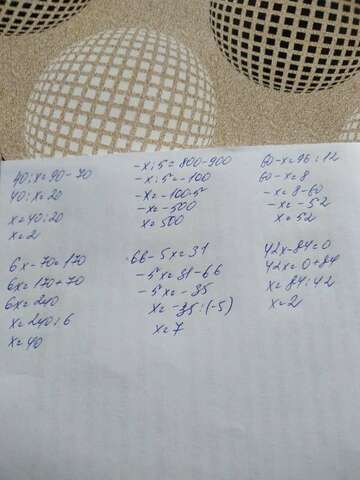 40:x=90-70
40:x=20
x=40:20
x=2
-x:5=800-900
-x:5=-100
-x=-100·5
-x=-500
x=500
60-x=96:12
60-x=8
-x=8-60
-x=-52
x=52
6x-70=170
6x=170+70
6x=240
x=240:6
x=40
66-5x=31
-5x=31-66
-5x=-35
x=-35:(-5)
x=7
42x-84=0
42x=0+84
x=84:42
x=2